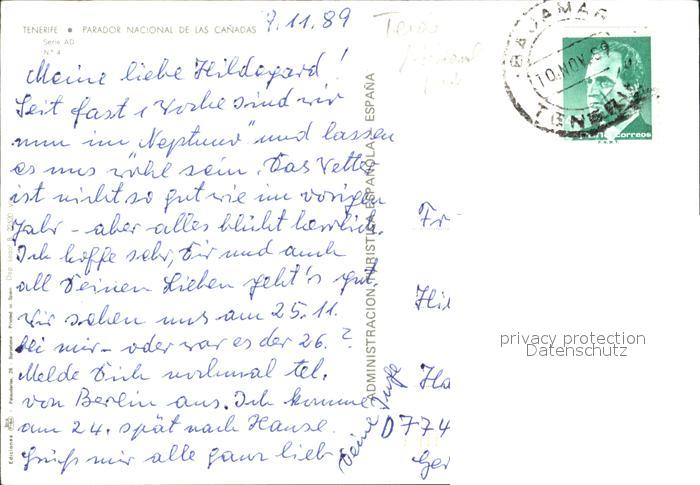 7.11.89
TENERIFE • PARADOR NACIONAL DE LAS CAÑADAS
Serie AD
N.° 4
Meine liebe Hildegard!
Seit fast 1 Woche sind wir
nun im "Neptuno" und lassen
es uns wohl sein. Das Wetter
ist nicht so gut wie im vorigen
Jahr - aber alles blüht herrlich.
Ich hoffe sehr, Dir und auch
all Deinen Lieben geht's gut.
Wir sehen uns am 25.11.
bei mir - oder war es der 26.?
Melde Dich nochmal tel.
von Berlin aus. Ich komme
am 24. spät nach Hause.
Grüß mir alle ganz lieb
Deine
ADMINISTRACION TURISTICA ESPAÑOLA - ESPAÑA
Printed in Spain
BAJAMAR
10 NOV. 89
TENER
correos
Fr
Hil
Ha
D774
Ger
privacy protection
Datenschutz